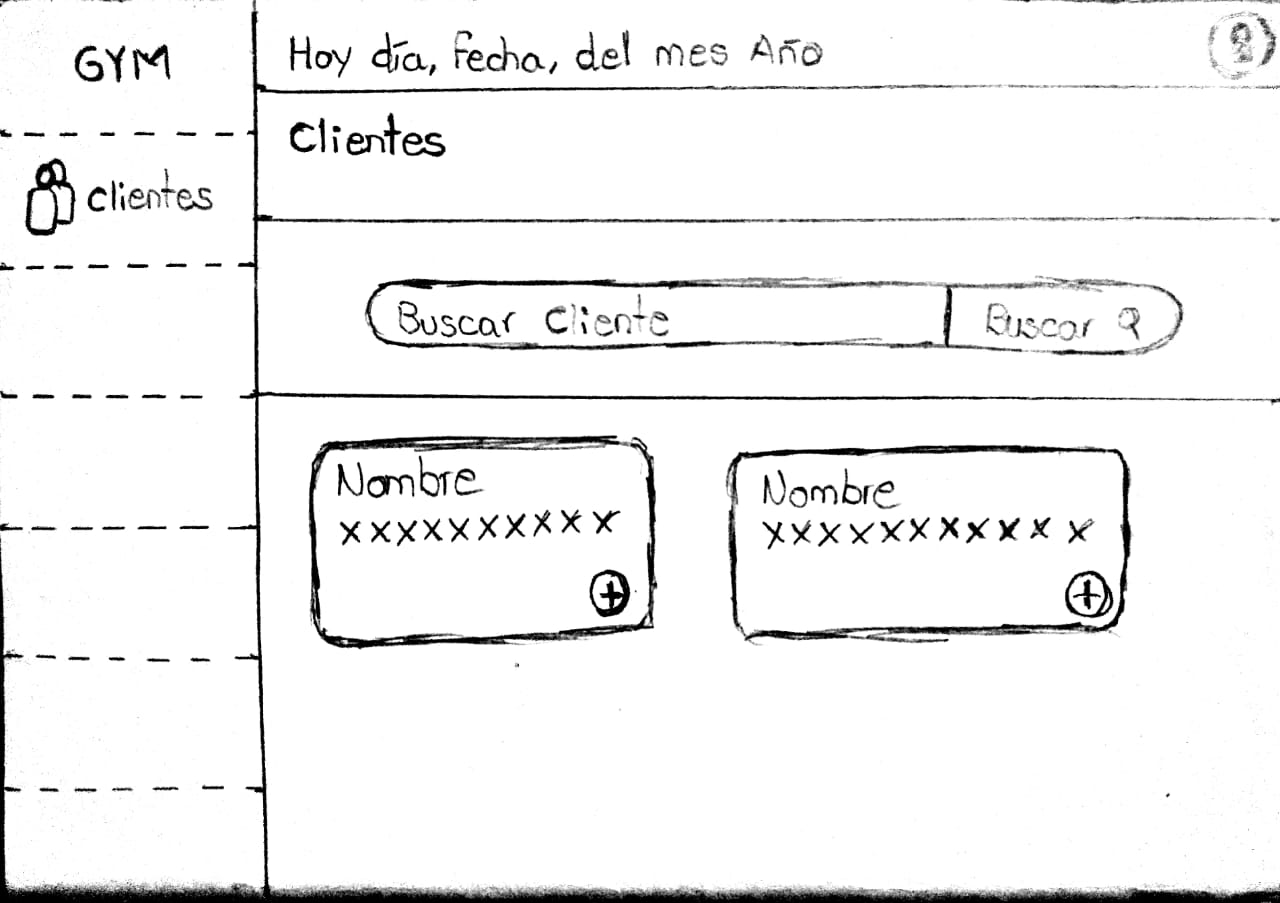 GYM
Hoy día, Fecha, del mes Año
Clientes
clientes
Buscar Cliente
Buscar
Nombre
xxxxxxxxxxx
Nombre
xxxxxxxxxxx